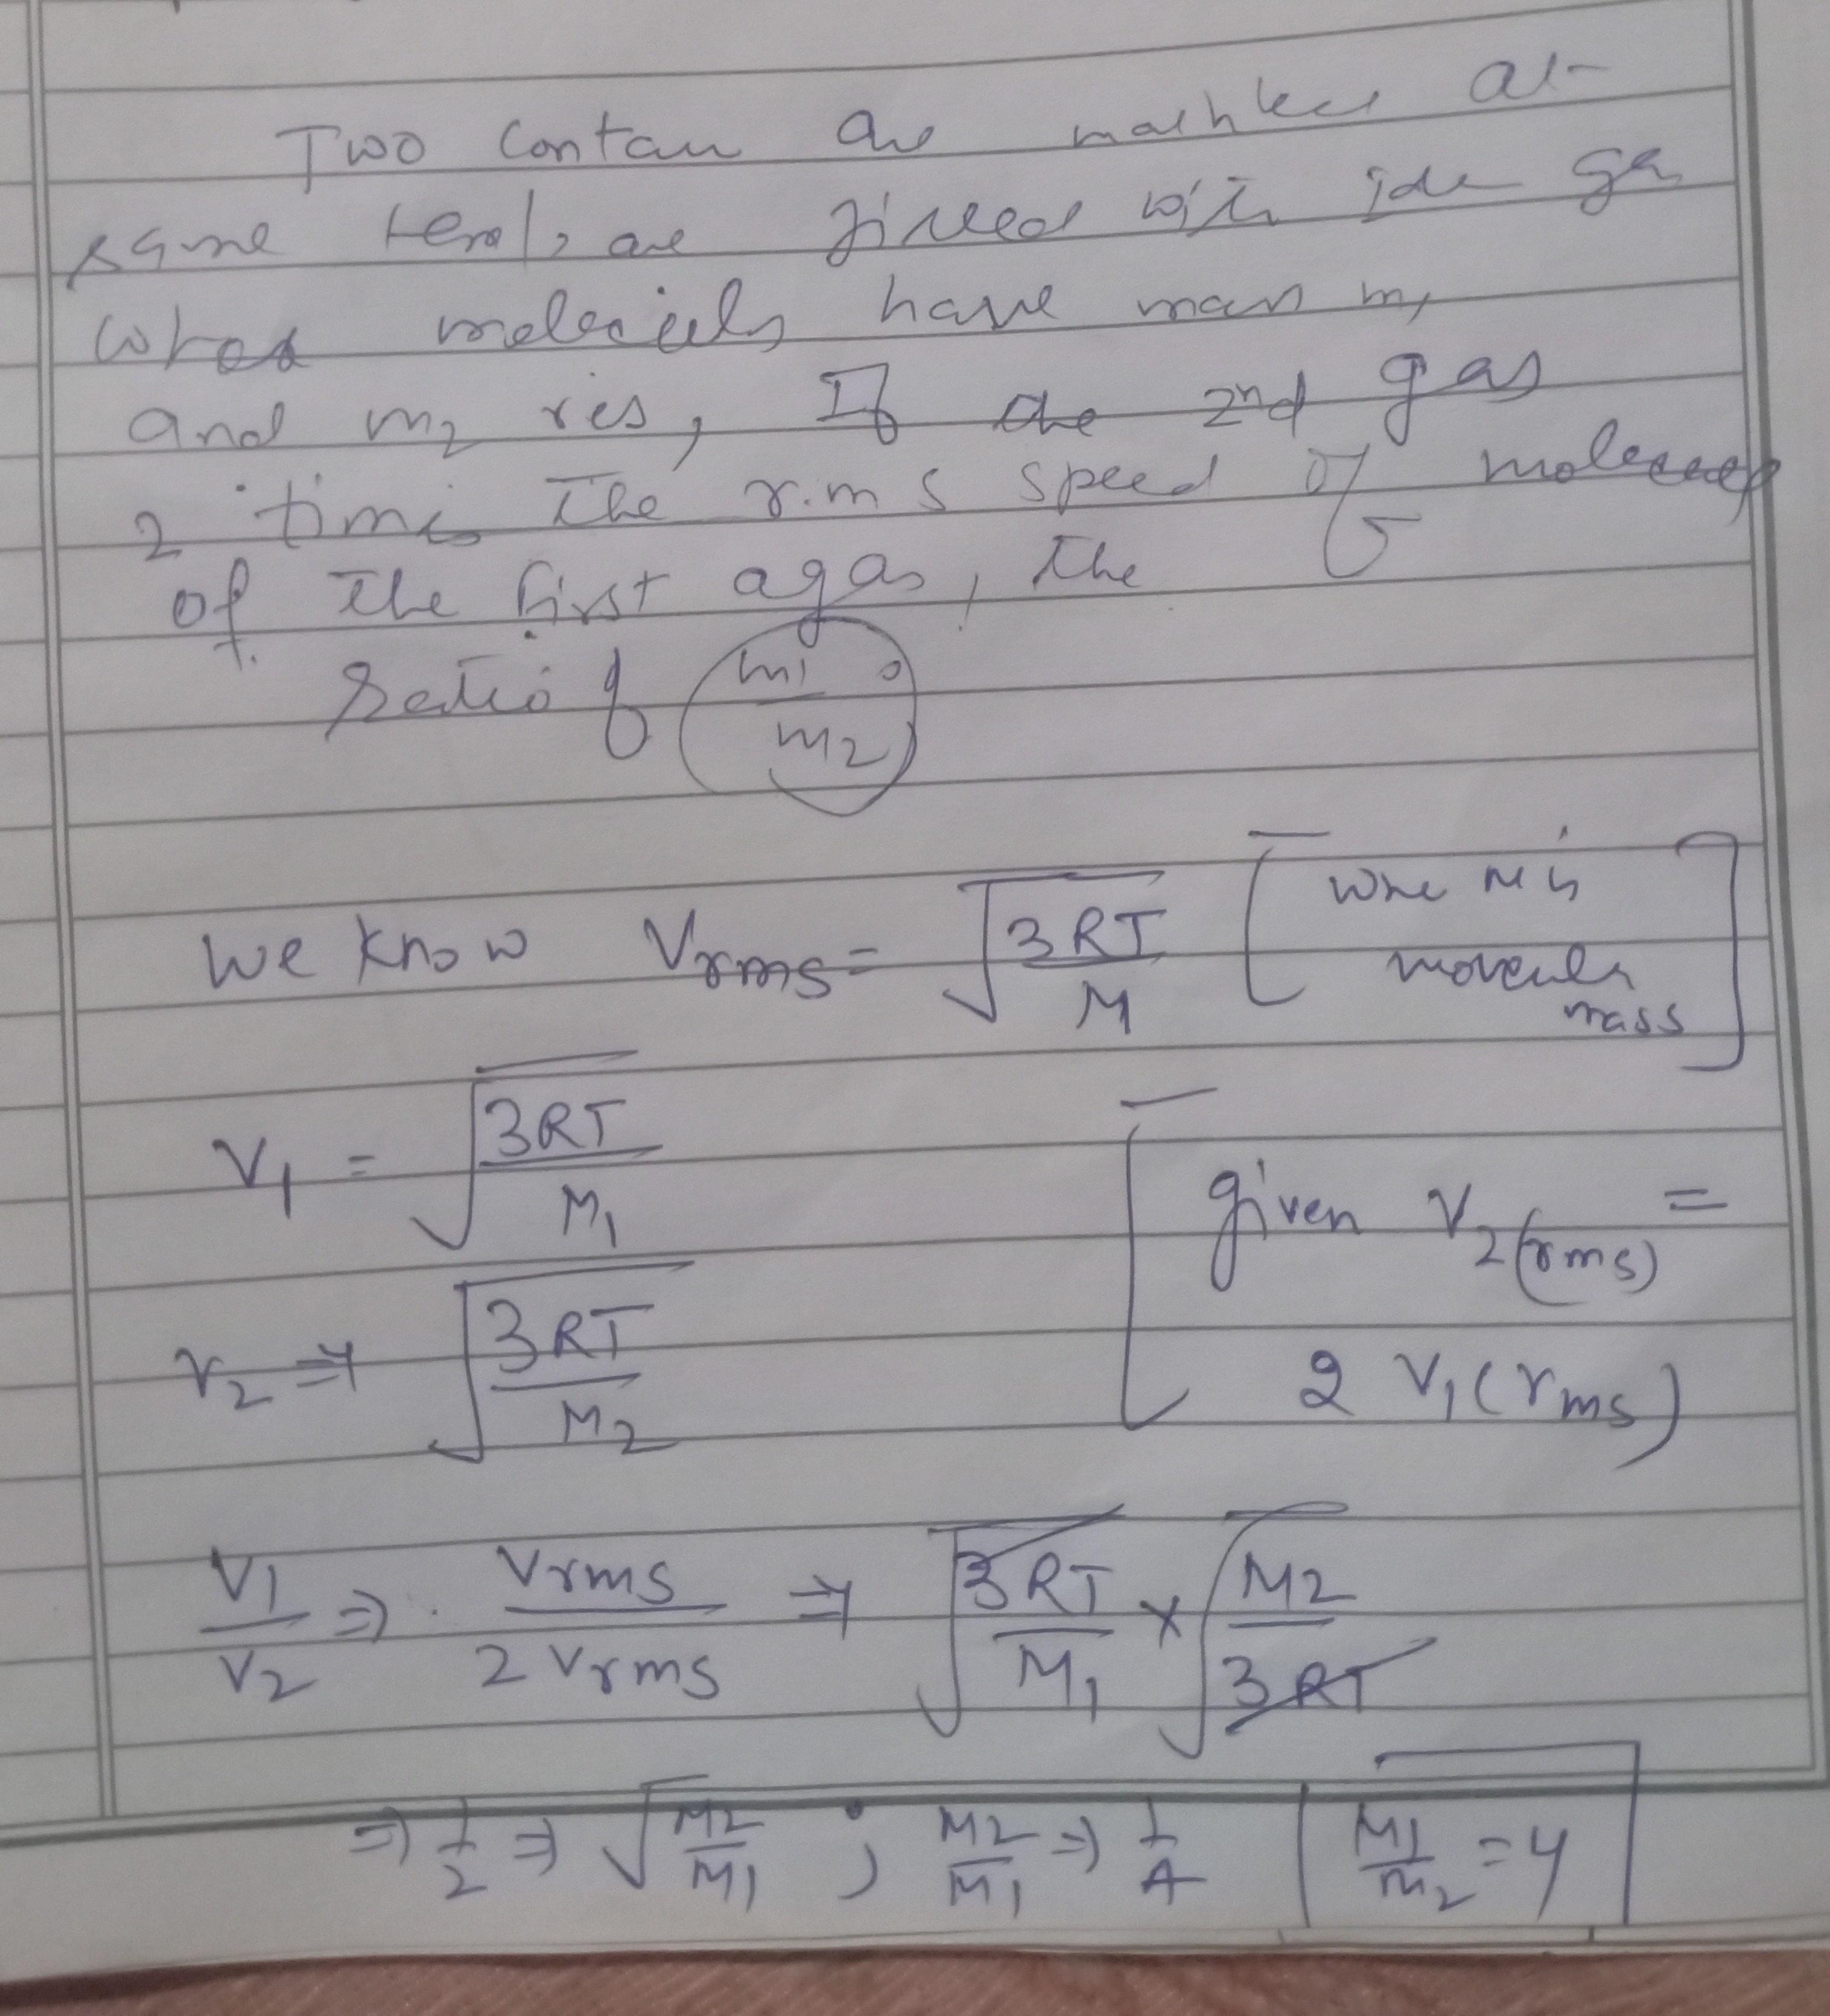 Two contan are at
same temp, are filled with ide gas
whos molecules have mass m1
and m2 res, If the 2nd gas
2 times The r.m s speed of molecules
of The first agas, the
ratio of m1/m2
We know Vrms = √(3RT/M) [whe M is molecular mass]
V1 = √(3RT/M1)
V2 ⇒ √(3RT/M2) [given V2(rms) = 2 V1(rms)
V1/V2 ⇒ Vrms/2Vrms ⇒ √(3RT/M1) × √(M2/3RT)
⇒ 1/2 ⇒ √(M2/M1) ; M2/M1 ⇒ 1/4 | M1/m2 = 4